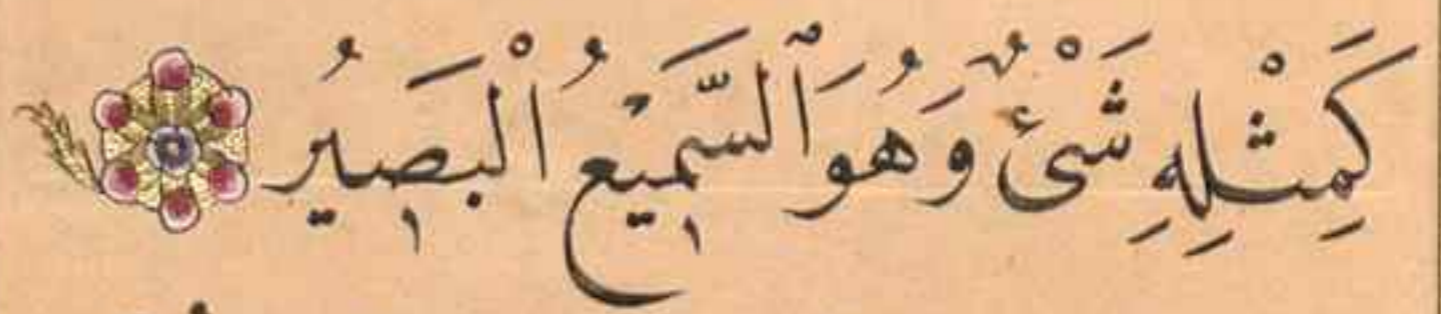 كَمِثْلِهِ شَىْءٌ وَهُوَ ٱلسَّمِيعُ الْبَصِيرُ